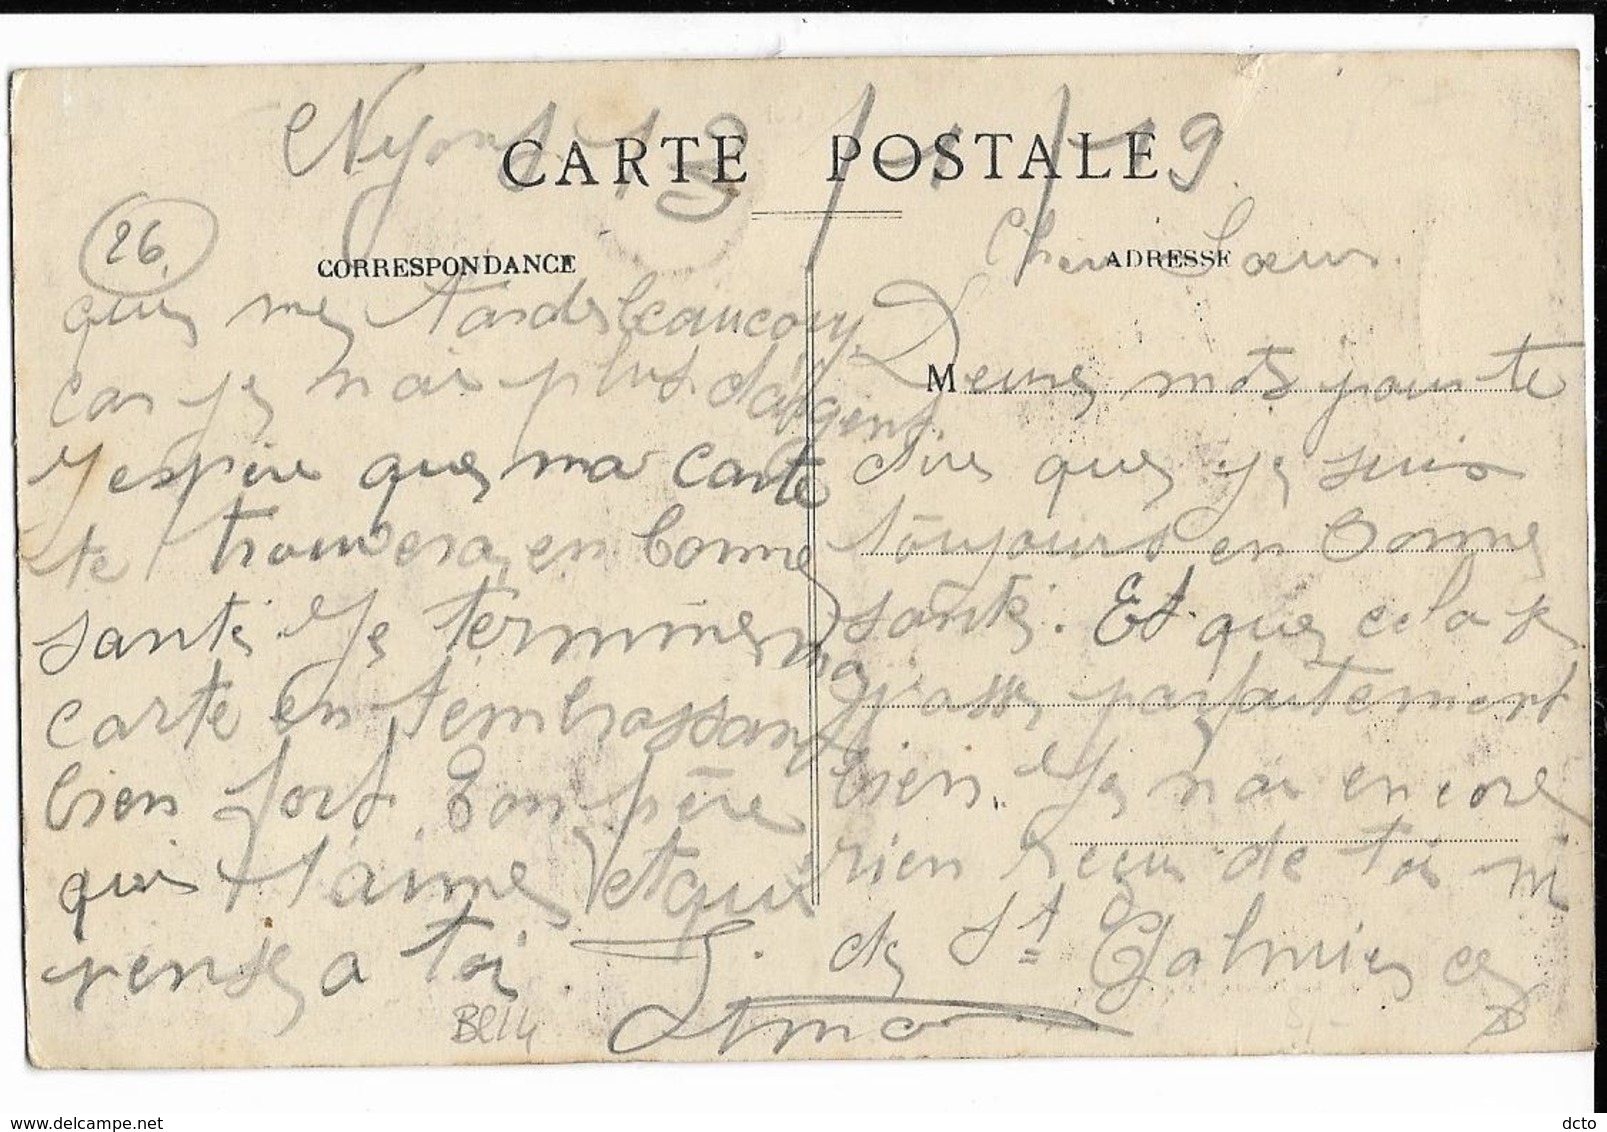 Nyons 13/1/19
CARTE POSTALE
26
CORRESPONDANCE
ADRESSE
Cheri Soeur
M
Deux mots pour te
dire que je suis
toujours en bonne
santé. Et que cela
parfaitement
bien. Je n'ai encore
rien reçu de toi ni
de St Galmier ce
que me tarde beaucoup
car je n'ai plus d'argent.
J'espère que ma carte
te trouvera en bonne
santé. Je termine ma
carte en t'embrassant
bien fort. Ton père
qui t'aime et qui
pense a toi.
BE14
dcto
www.delcampe.net